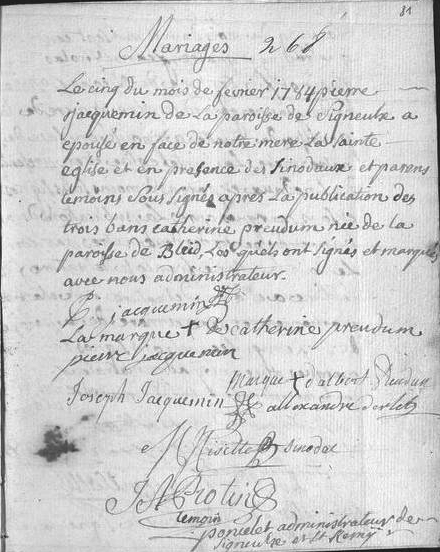 81
Mariages 268
Le cinq du mois de fevrier 1754 pierre
jacquemin de La paroisse de Signeulx a
epousé en face de notre mere La sainte
eglise et en presence des sinodaux et parens
temoins sous signés apres La publication des
trois bans catherine preudum née de la
paroisse de Bleid, Les quels ont signés et marqués
avec nous administrateur.
P jacquemin
La marque + de catherine preudum
pierre jacquemin
marque + d'albert
Joseph Jacquemin allexandre
sinodal
temoin
poncelet administrateur de
signeulx et St Remÿ